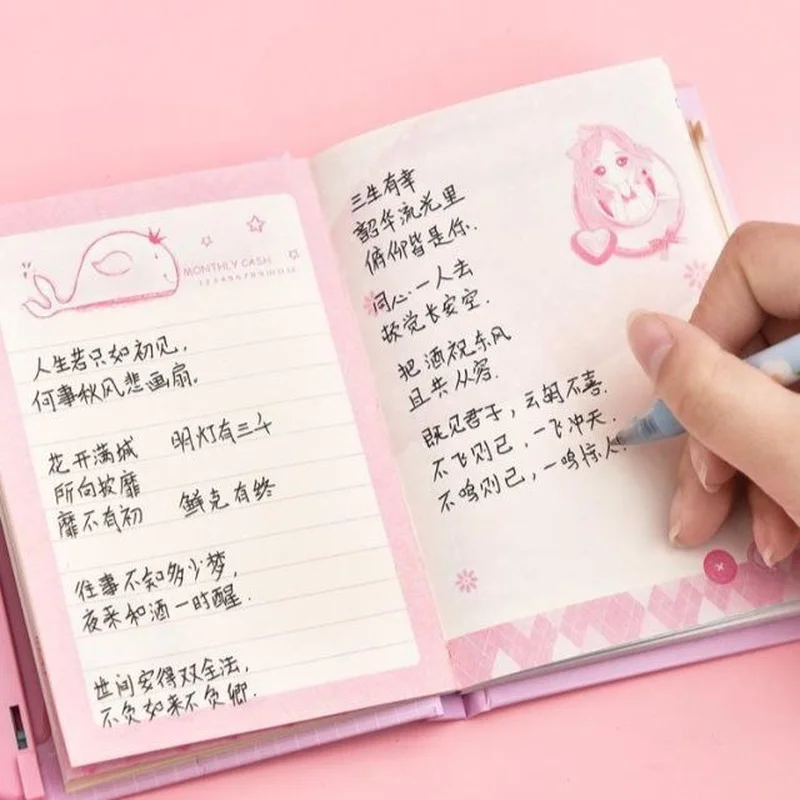 MONTHLY CASH
1 2 3 4 5 6 7 8 9 10 11 12
人生若只如初见,
何事秋风悲画扇.
花开满城 明灯有三千
所向披靡
靡不有初 鲜克有终
往事不知多少梦,
夜来和酒一时醒.
世间安得双全法,
不负如来不负卿.
三生有幸
韶华流光里
俯仰皆是你.
同心一人去
顿觉长安空.
把酒祝东风
且共从容.
既见君子, 云胡不喜.
不飞则已, 一飞冲天.
不鸣则已, 一鸣惊人.